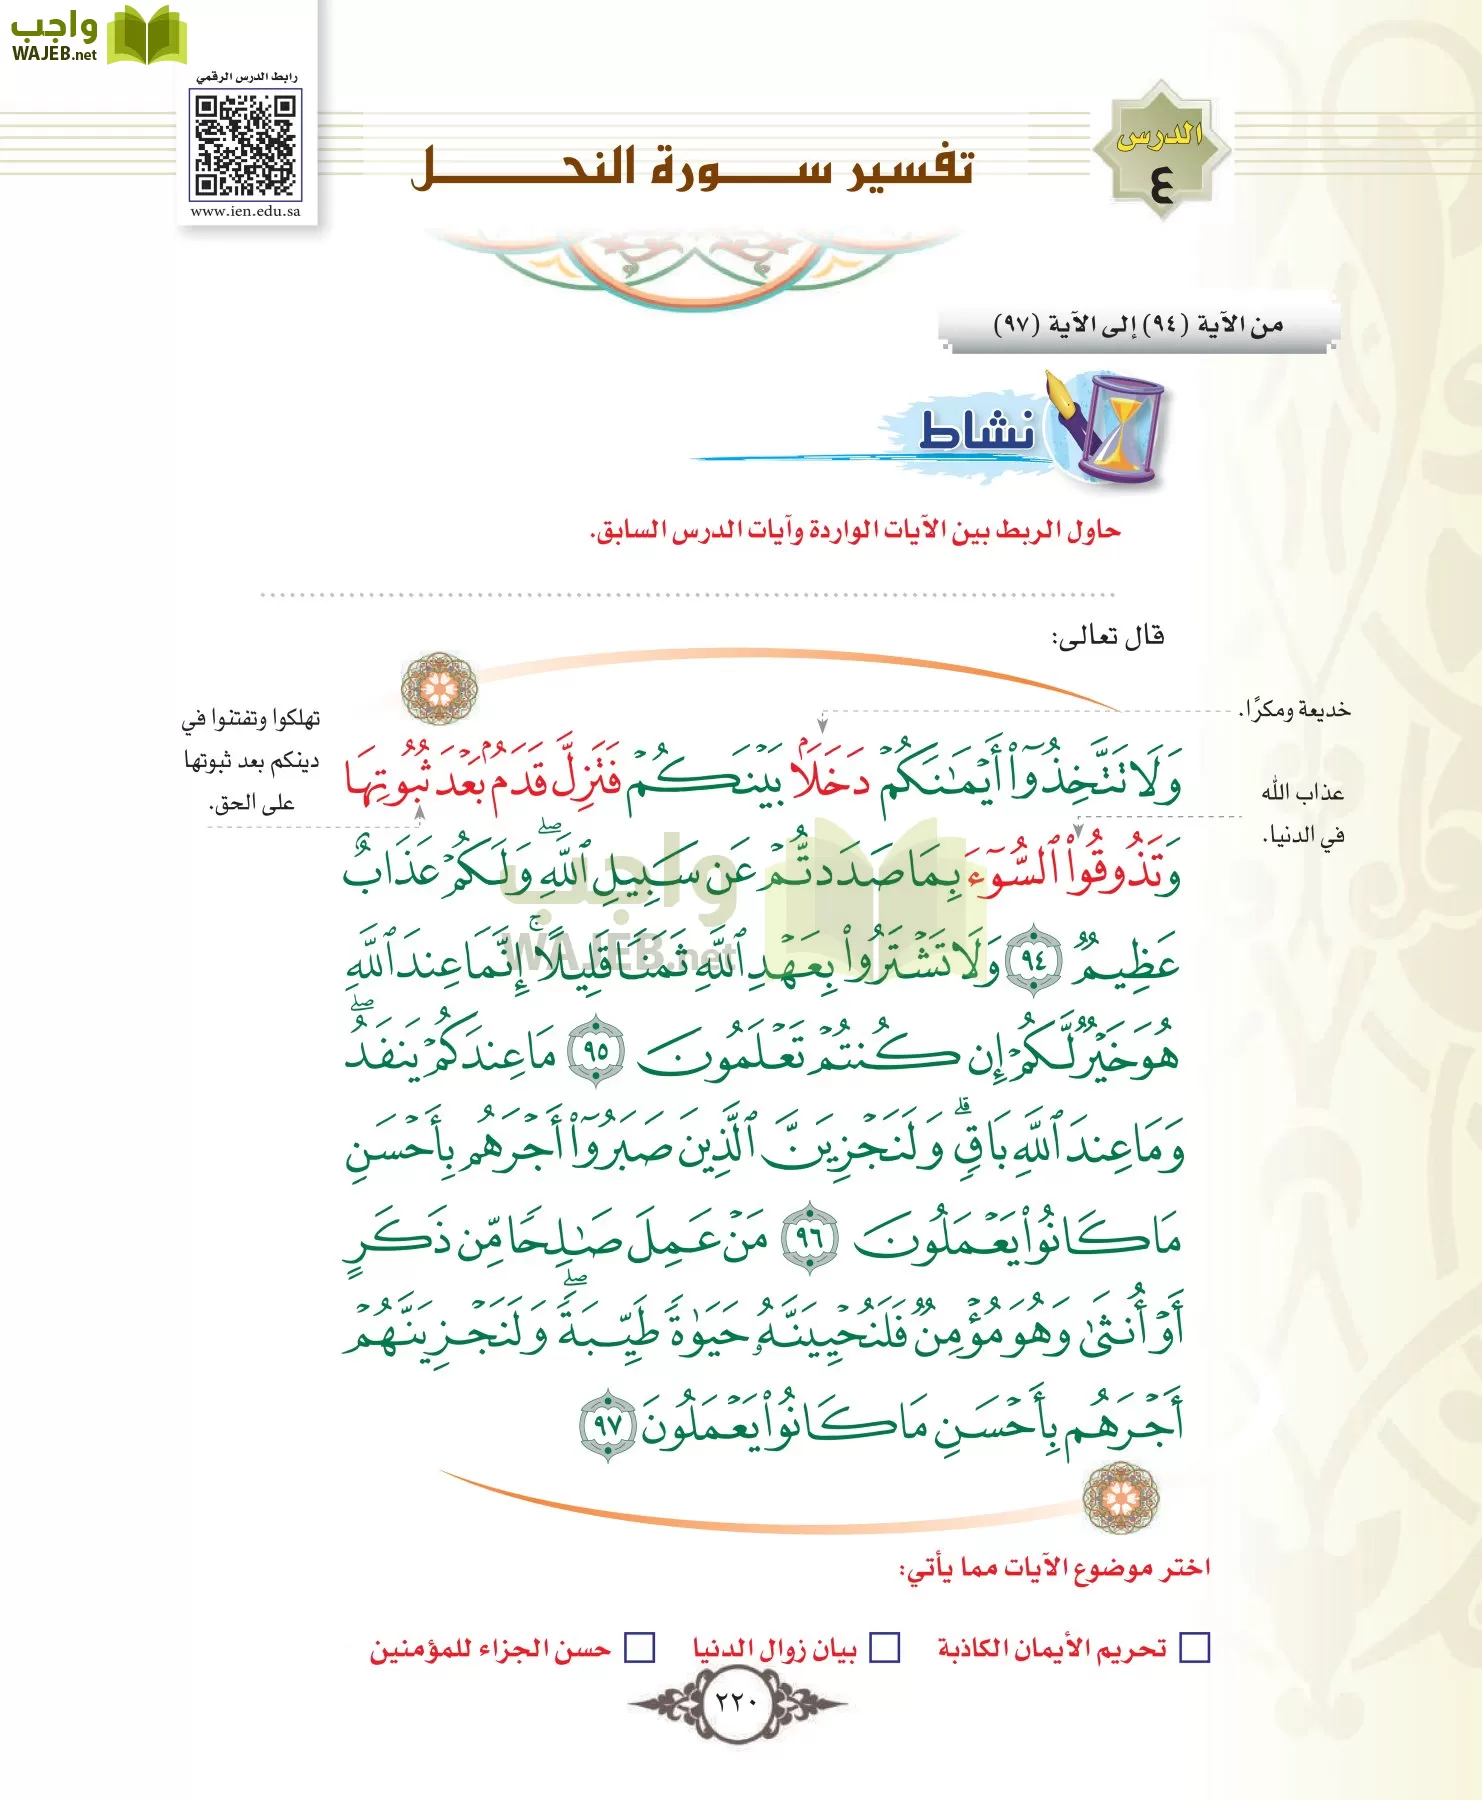 واجب
WAJEB.net
رابط الدرس الرقمي
www.ien.edu.sa
الدرس
٤
تفسير سورة النحل
من الآية (٩٤) إلى الآية (٩٧)
نشاط
حاول الربط بين الآيات الواردة وآيات الدرس السابق.
قال تعالى:
خديعة ومكرًا.
عذاب الله
في الدنيا.
تهلكوا وتفتنوا في
دينكم بعد ثبوتها
على الحق.
وَلَا تَتَّخِذُوٓاْ أَيۡمَٰنَكُمۡ دَخَلَۢا بَيۡنَكُمۡ فَتَزِلَّ قَدَمُۢ بَعۡدَ ثُبُوتِهَا
وَتَذُوقُواْ ٱلسُّوٓءَ بِمَا صَدَدتُّمۡ عَن سَبِيلِ ٱللَّهِۖ وَلَكُمۡ عَذَابٌ
عَظِيمٞ ٩٤ وَلَا تَشۡتَرُواْ بِعَهۡدِ ٱللَّهِ ثَمَنٗا قَلِيلًاۚ إِنَّمَا عِندَ ٱللَّهِ
هُوَ خَيۡرٞ لَّكُمۡ إِن كُنتُمۡ تَعۡلَمُونَ ٩٥ مَا عِندَكُمۡ يَنفَدُۖ
وَمَا عِندَ ٱللَّهِ بَاقٖۗ وَلَنَجۡزِيَنَّ ٱلَّذِينَ صَبَرُوٓاْ أَجۡرَهُم بِأَحۡسَنِ
مَا كَانُواْ يَعۡمَلُونَ ٩٦ مَنۡ عَمِلَ صَٰلِحٗا مِّن ذَكَرٍ
أَوۡ أُنثَىٰ وَهُوَ مُؤۡمِنٞ فَلَنُحۡيِيَنَّهُۥ حَيَوٰةٗ طَيِّبَةٗۖ وَلَنَجۡزِيَنَّهُمۡ
أَجۡرَهُم بِأَحۡسَنِ مَا كَانُواْ يَعۡمَلُونَ ٩٧
واجب
WAJEB.net
اختر موضوع الآيات مما يأتي:
تحريم الأيمان الكاذبة بيان زوال الدنيا حسن الجزاء للمؤمنين
٢٢٠